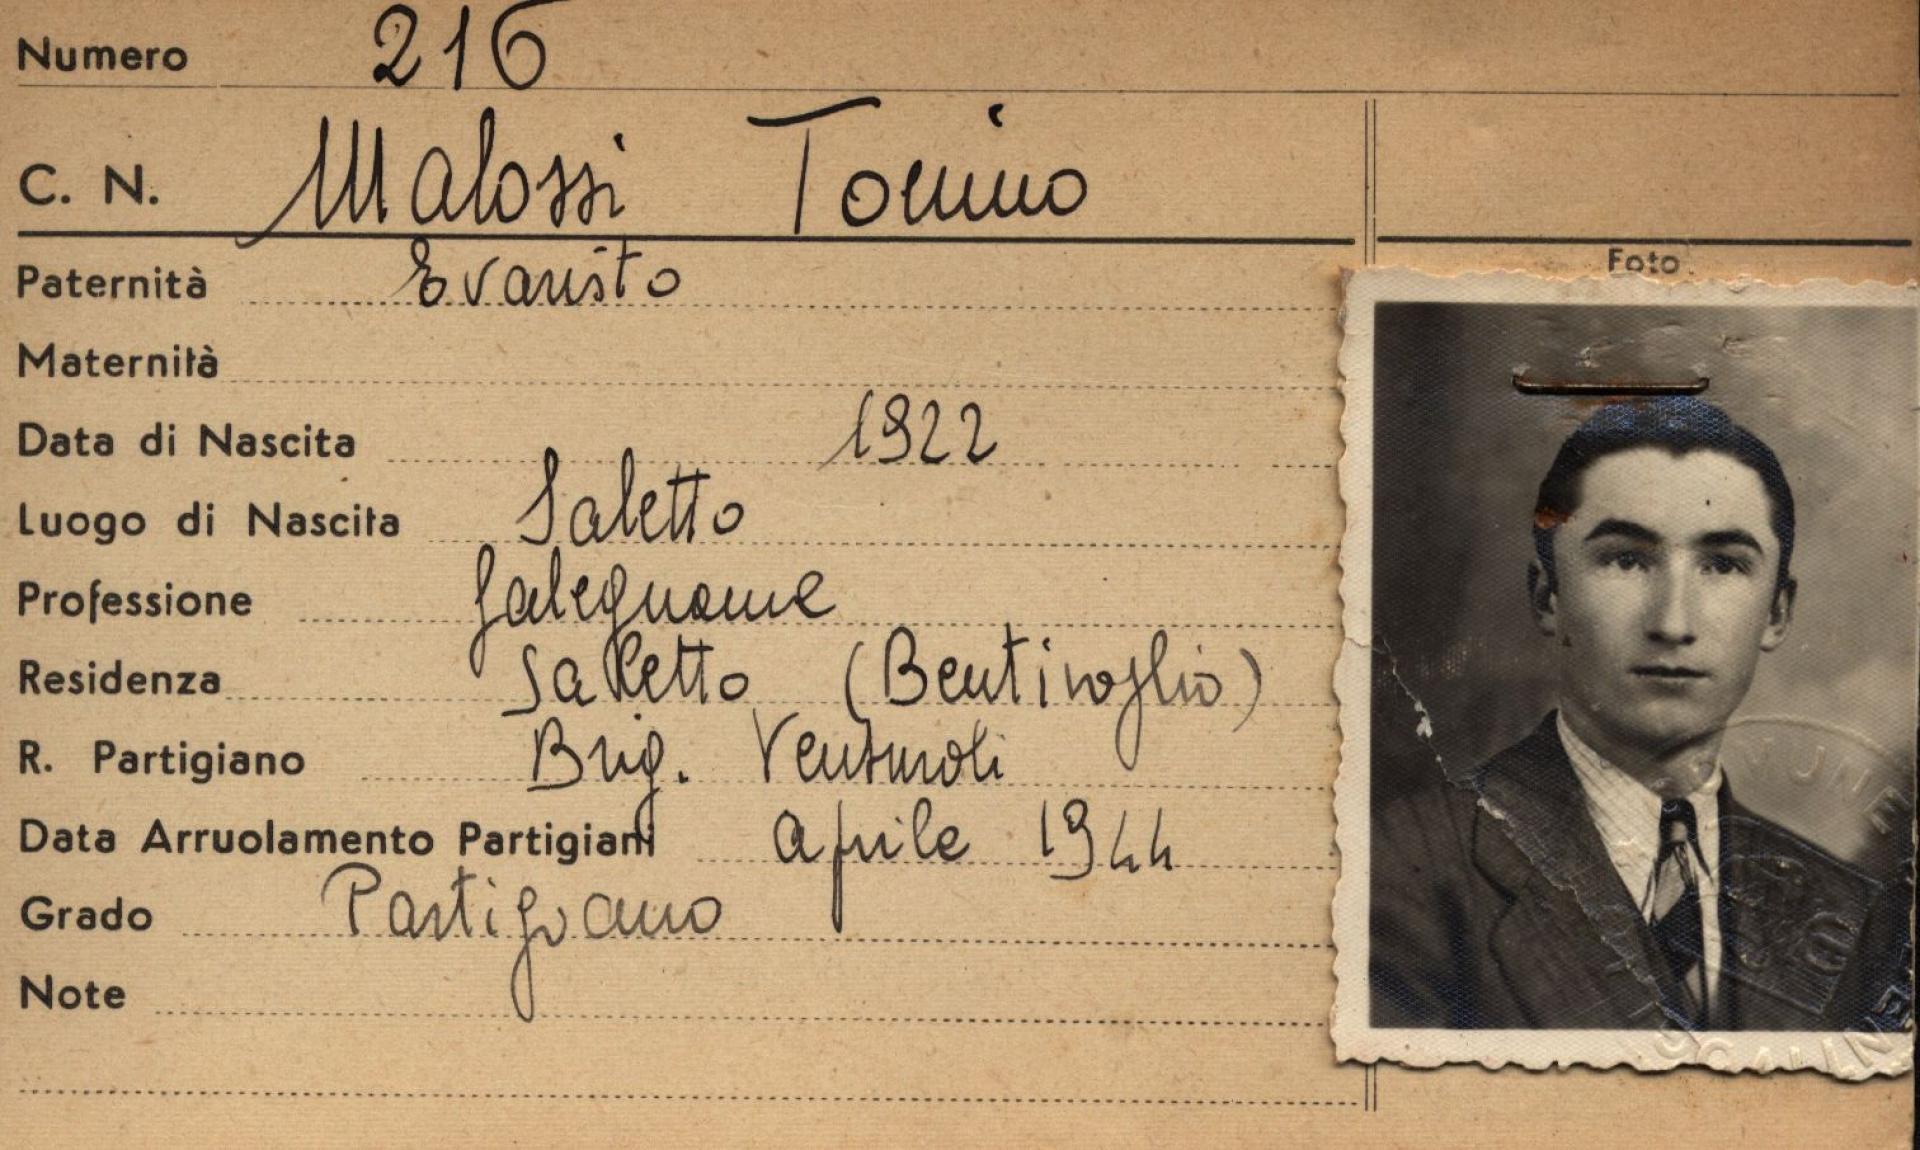 Numero 216
C. N. Malossi Tonino
Foto
Paternità Evaristo
Maternità
Data di Nascita 1922
Luogo di Nascita Saletto
Professione falegname
Residenza Saletto (Bentivoglio)
R. Partigiano Brig. Venturoli
Data Arruolamento Partigiani aprile 1944
Grado Partigiano
Note